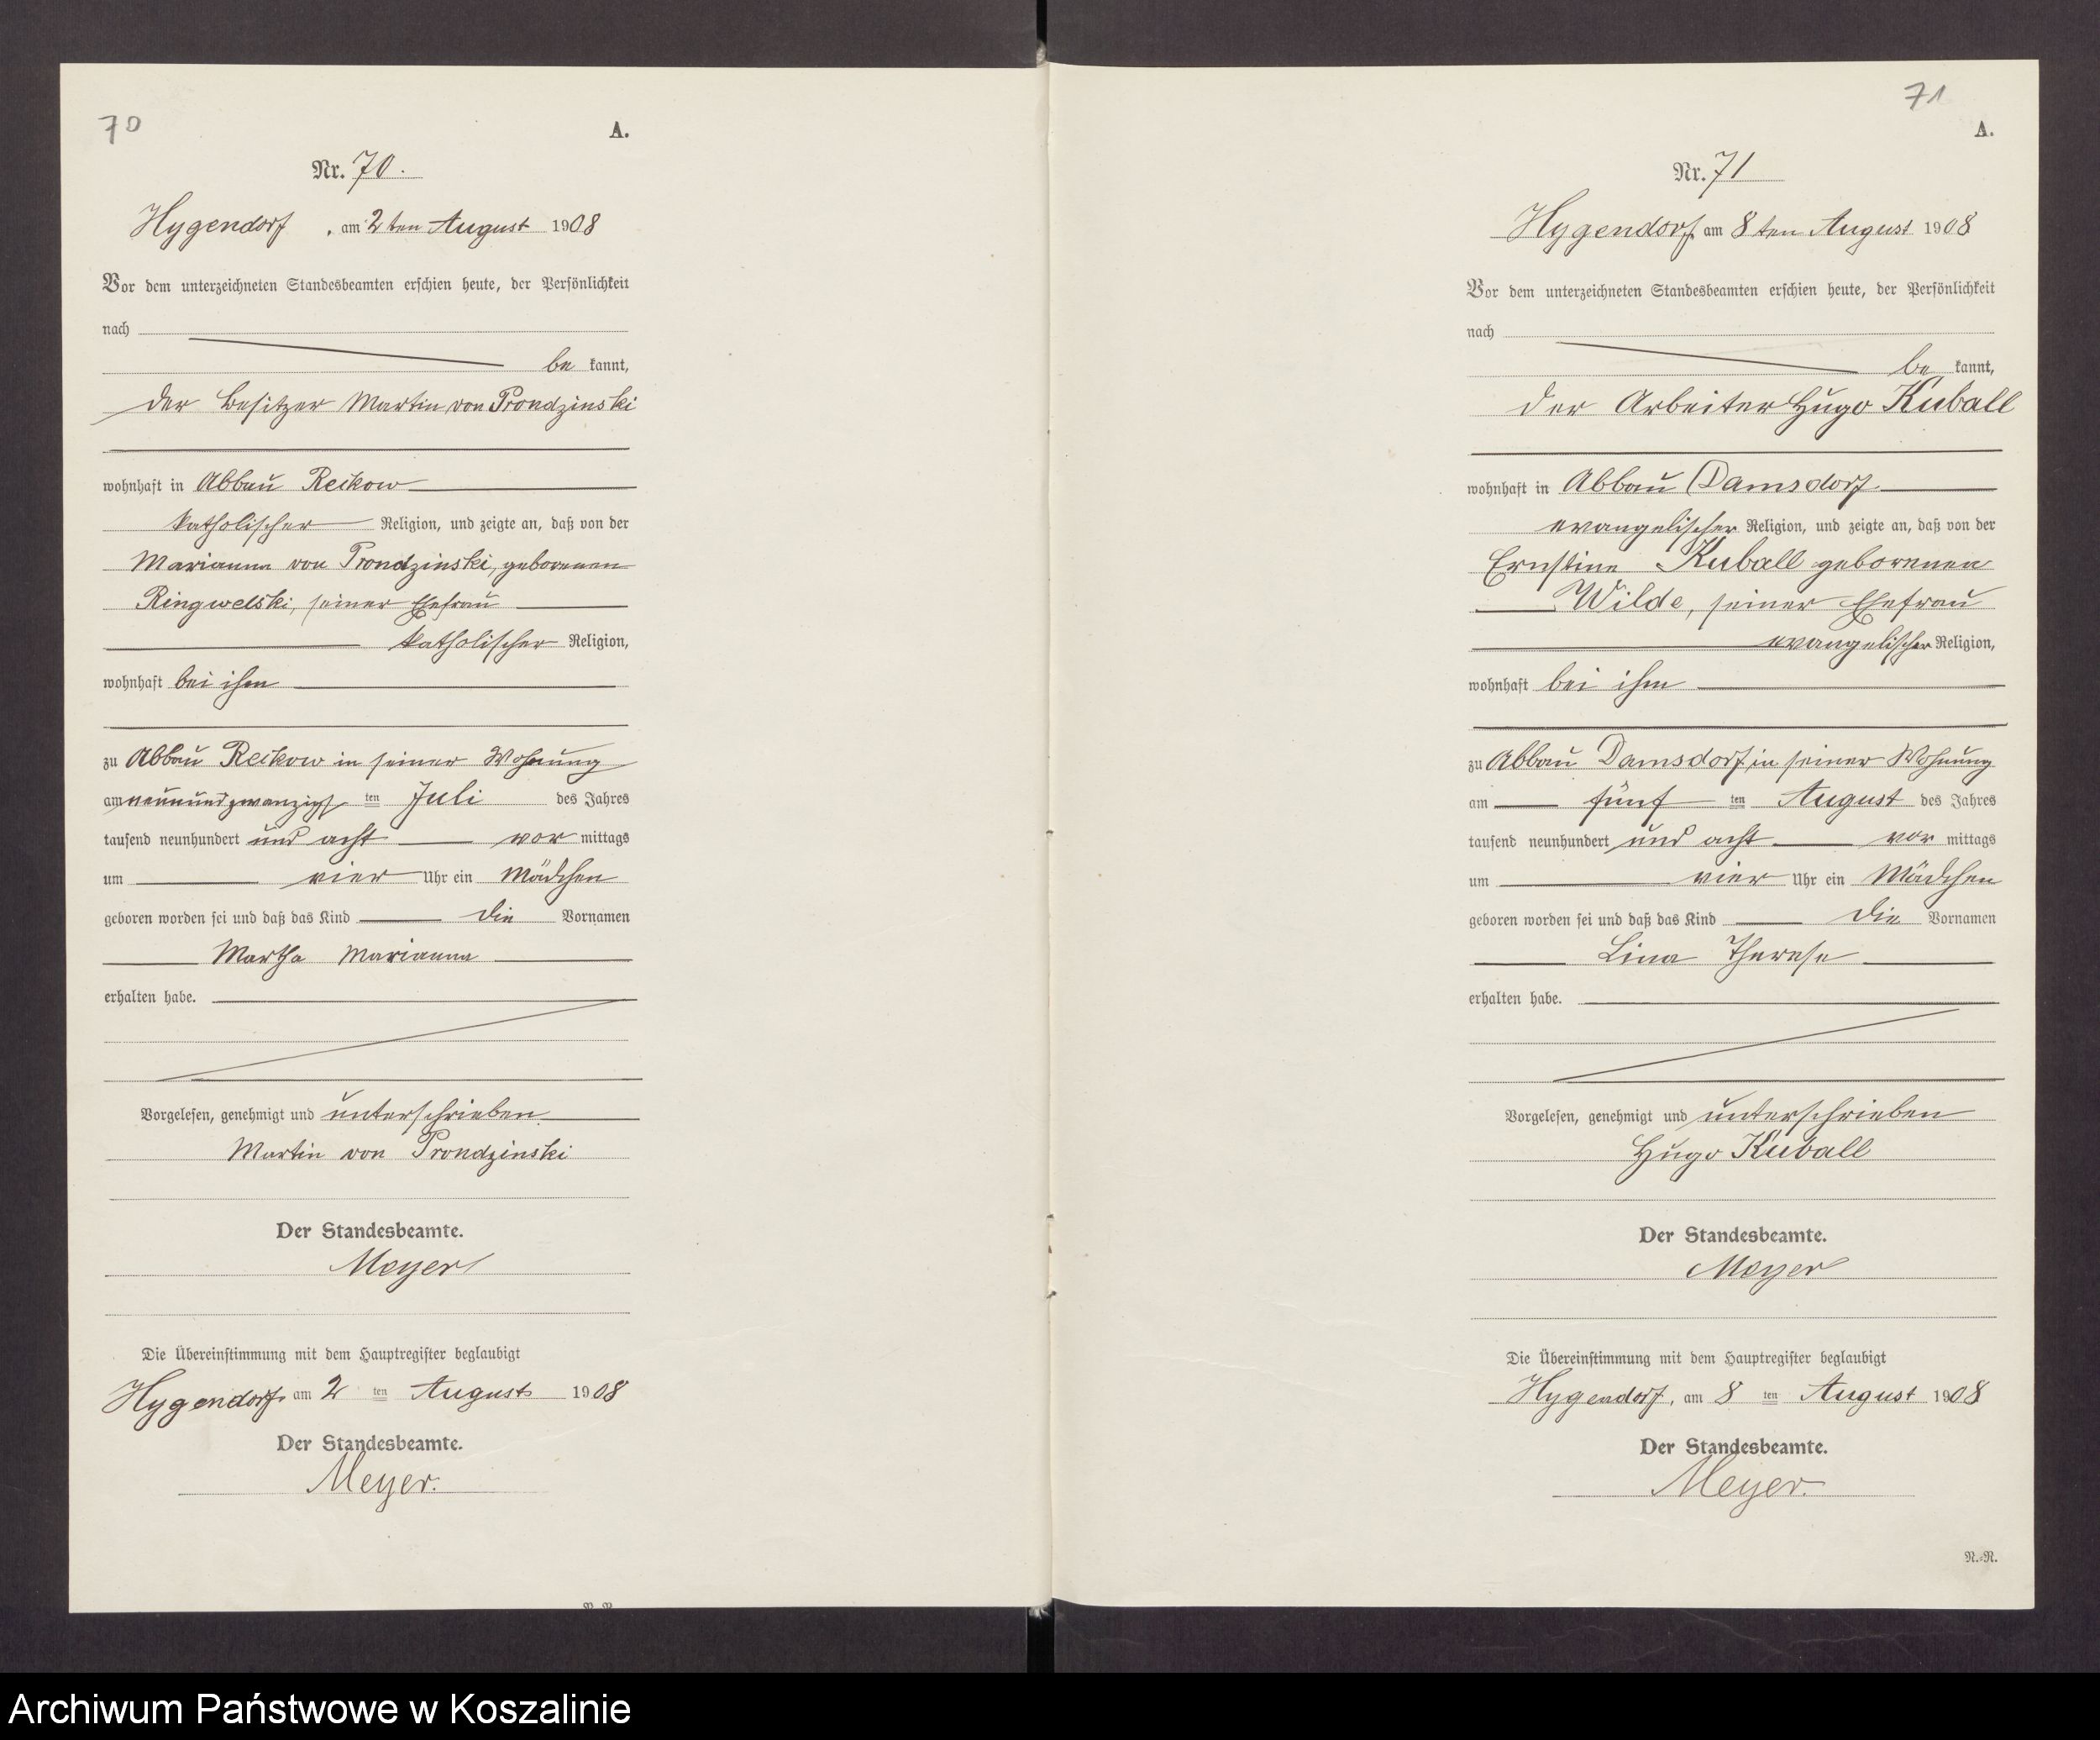 70
A.
Nr. 70.
Hygendorf, am 2ten August 1908
Vor dem unterzeichneten Standesbeamten erschien heute, der Persönlichkeit
nach
be kannt,
der Besitzer Martin von Prondzinski
wohnhaft in Abbau Reckow
katholischer Religion, und zeigte an, daß von der
Marianna von Prondzinski, geborenen
Ringwelski, seiner Ehefrau
katholischer Religion,
wohnhaft bei ihm
zu Abbau Reckow in seiner Wohnung
am neunundzwanzigs ten Juli des Jahres
tausend neunhundert und acht vor mittags
um vier Uhr ein Mädchen
geboren worden sei und daß das Kind die Vornamen
Martha Marianna
erhalten habe.
Vorgelesen, genehmigt und unterschrieben
Martin von Prondzinski
Der Standesbeamte.
Meyer
Die Übereinstimmung mit dem Hauptregister beglaubigt
Hygendorf am 2 ten August 1908
Der Standesbeamte.
Meyer.
71
A.
Nr. 71
Hygendorf, am 8ten August 1908
Vor dem unterzeichneten Standesbeamten erschien heute, der Persönlichkeit
nach
be kannt,
der Arbeiter Hugo Kuball
wohnhaft in Abbau Damsdorf
evangelischer Religion, und zeigte an, daß von der
Ernstine Kuball geborenen
Wilde, seiner Ehefrau
evangelischer Religion,
wohnhaft bei ihm
zu Abbau Damsdorf, in seiner Wohnung
am fünf ten August des Jahres
tausend neunhundert und acht vor mittags
um vier Uhr ein Mädchen
geboren worden sei und daß das Kind die Vornamen
Lina Therese
erhalten habe.
Vorgelesen, genehmigt und unterschrieben
Hugo Kuball
Der Standesbeamte.
Meyer
Die Übereinstimmung mit dem Hauptregister beglaubigt
Hygendorf, am 8 ten August 1908
Der Standesbeamte.
Meyer.
N.-N.
Archiwum Państwowe w Koszalinie